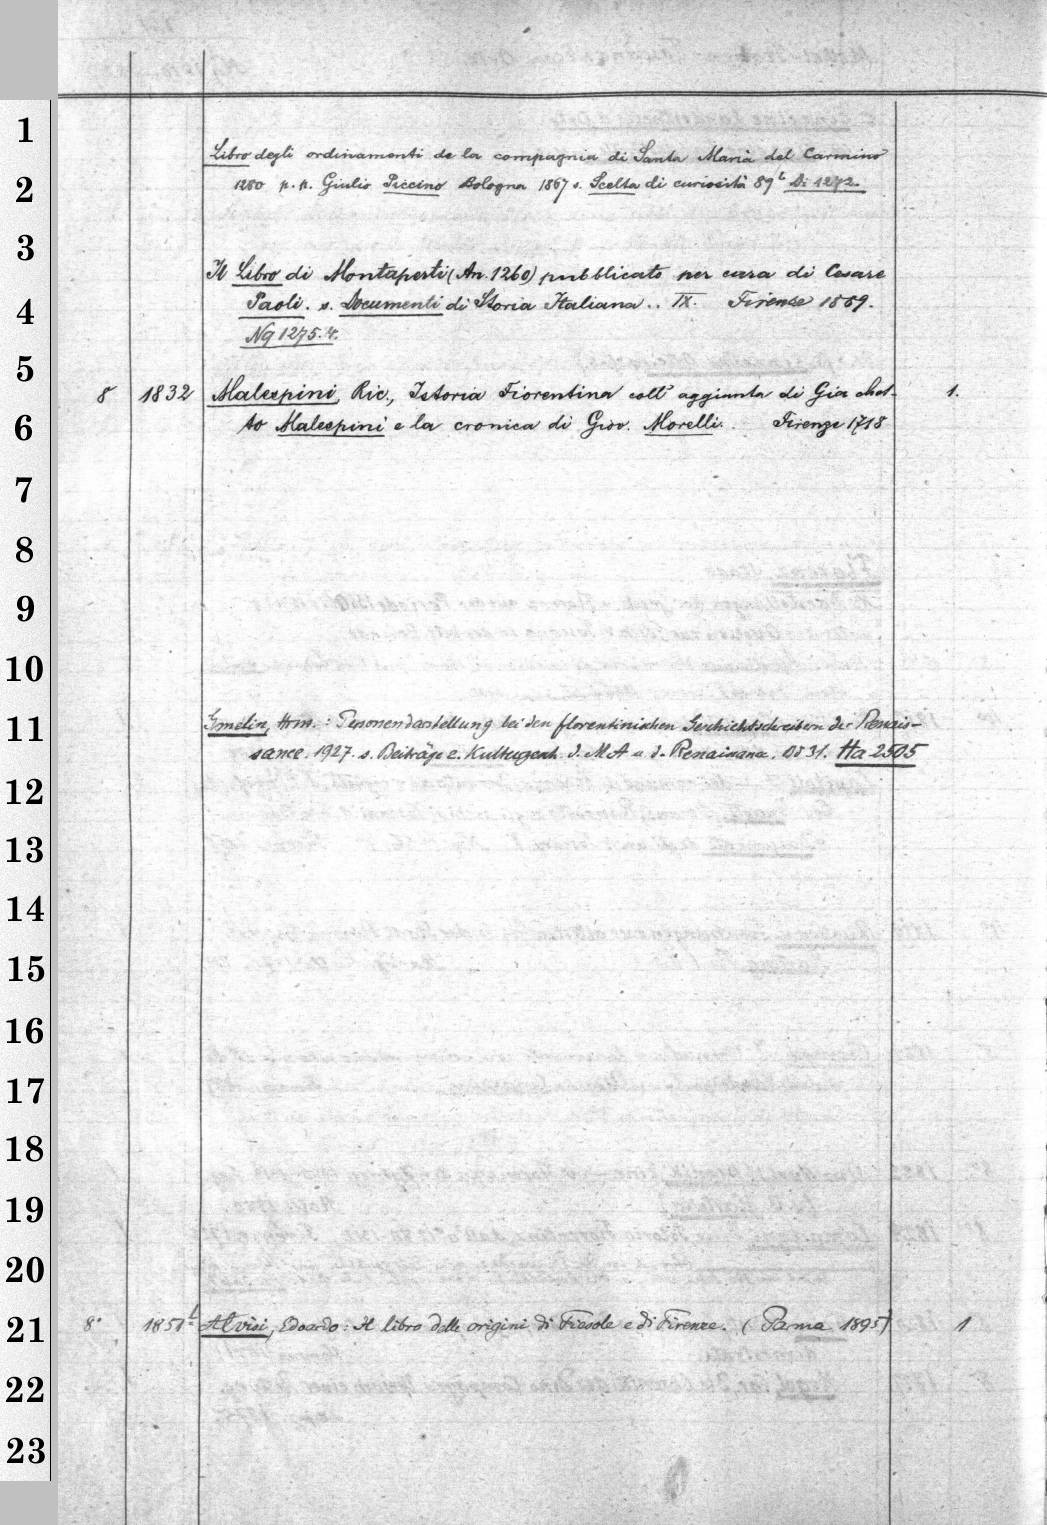 1
Libro degli ordinamenti de la compagnia di Santa Maria del Carmino
2
1280 p. p. Giulio Piccino Bologna 1867 s. Scelta di curiosità 89 Di 1272.
3
Il Libro di Montaperti (An. 1260) pubblicato per cura di Cesare
4
Paoli. s. Documenti di Storia Italiana .. IX. Firenze 1889.
Nq 1275. 4.
5
8 1832 Malespini, Ric., Istoria Fiorentina coll' aggiunta di Giachet- 1.
6
to Malespini e la cronica di Giov. Morelli. Firenze 1718
7
8
9
10
11
Gmelin, Hrm.: Personendarstellung bei den florentinischen Geschichtschreibern der Renais-
sance. 1927. s. Beiträge z. Kulturgesch. d. MA u. d. Renaissance. Bd 31. Ha 2505
12
13
14
15
16
17
18
19
20
21
8° 1851 Alvisi, Edoardo: Il libro delle origini di Fiesole e di Firenze. (Parma 1895) 1
22
23